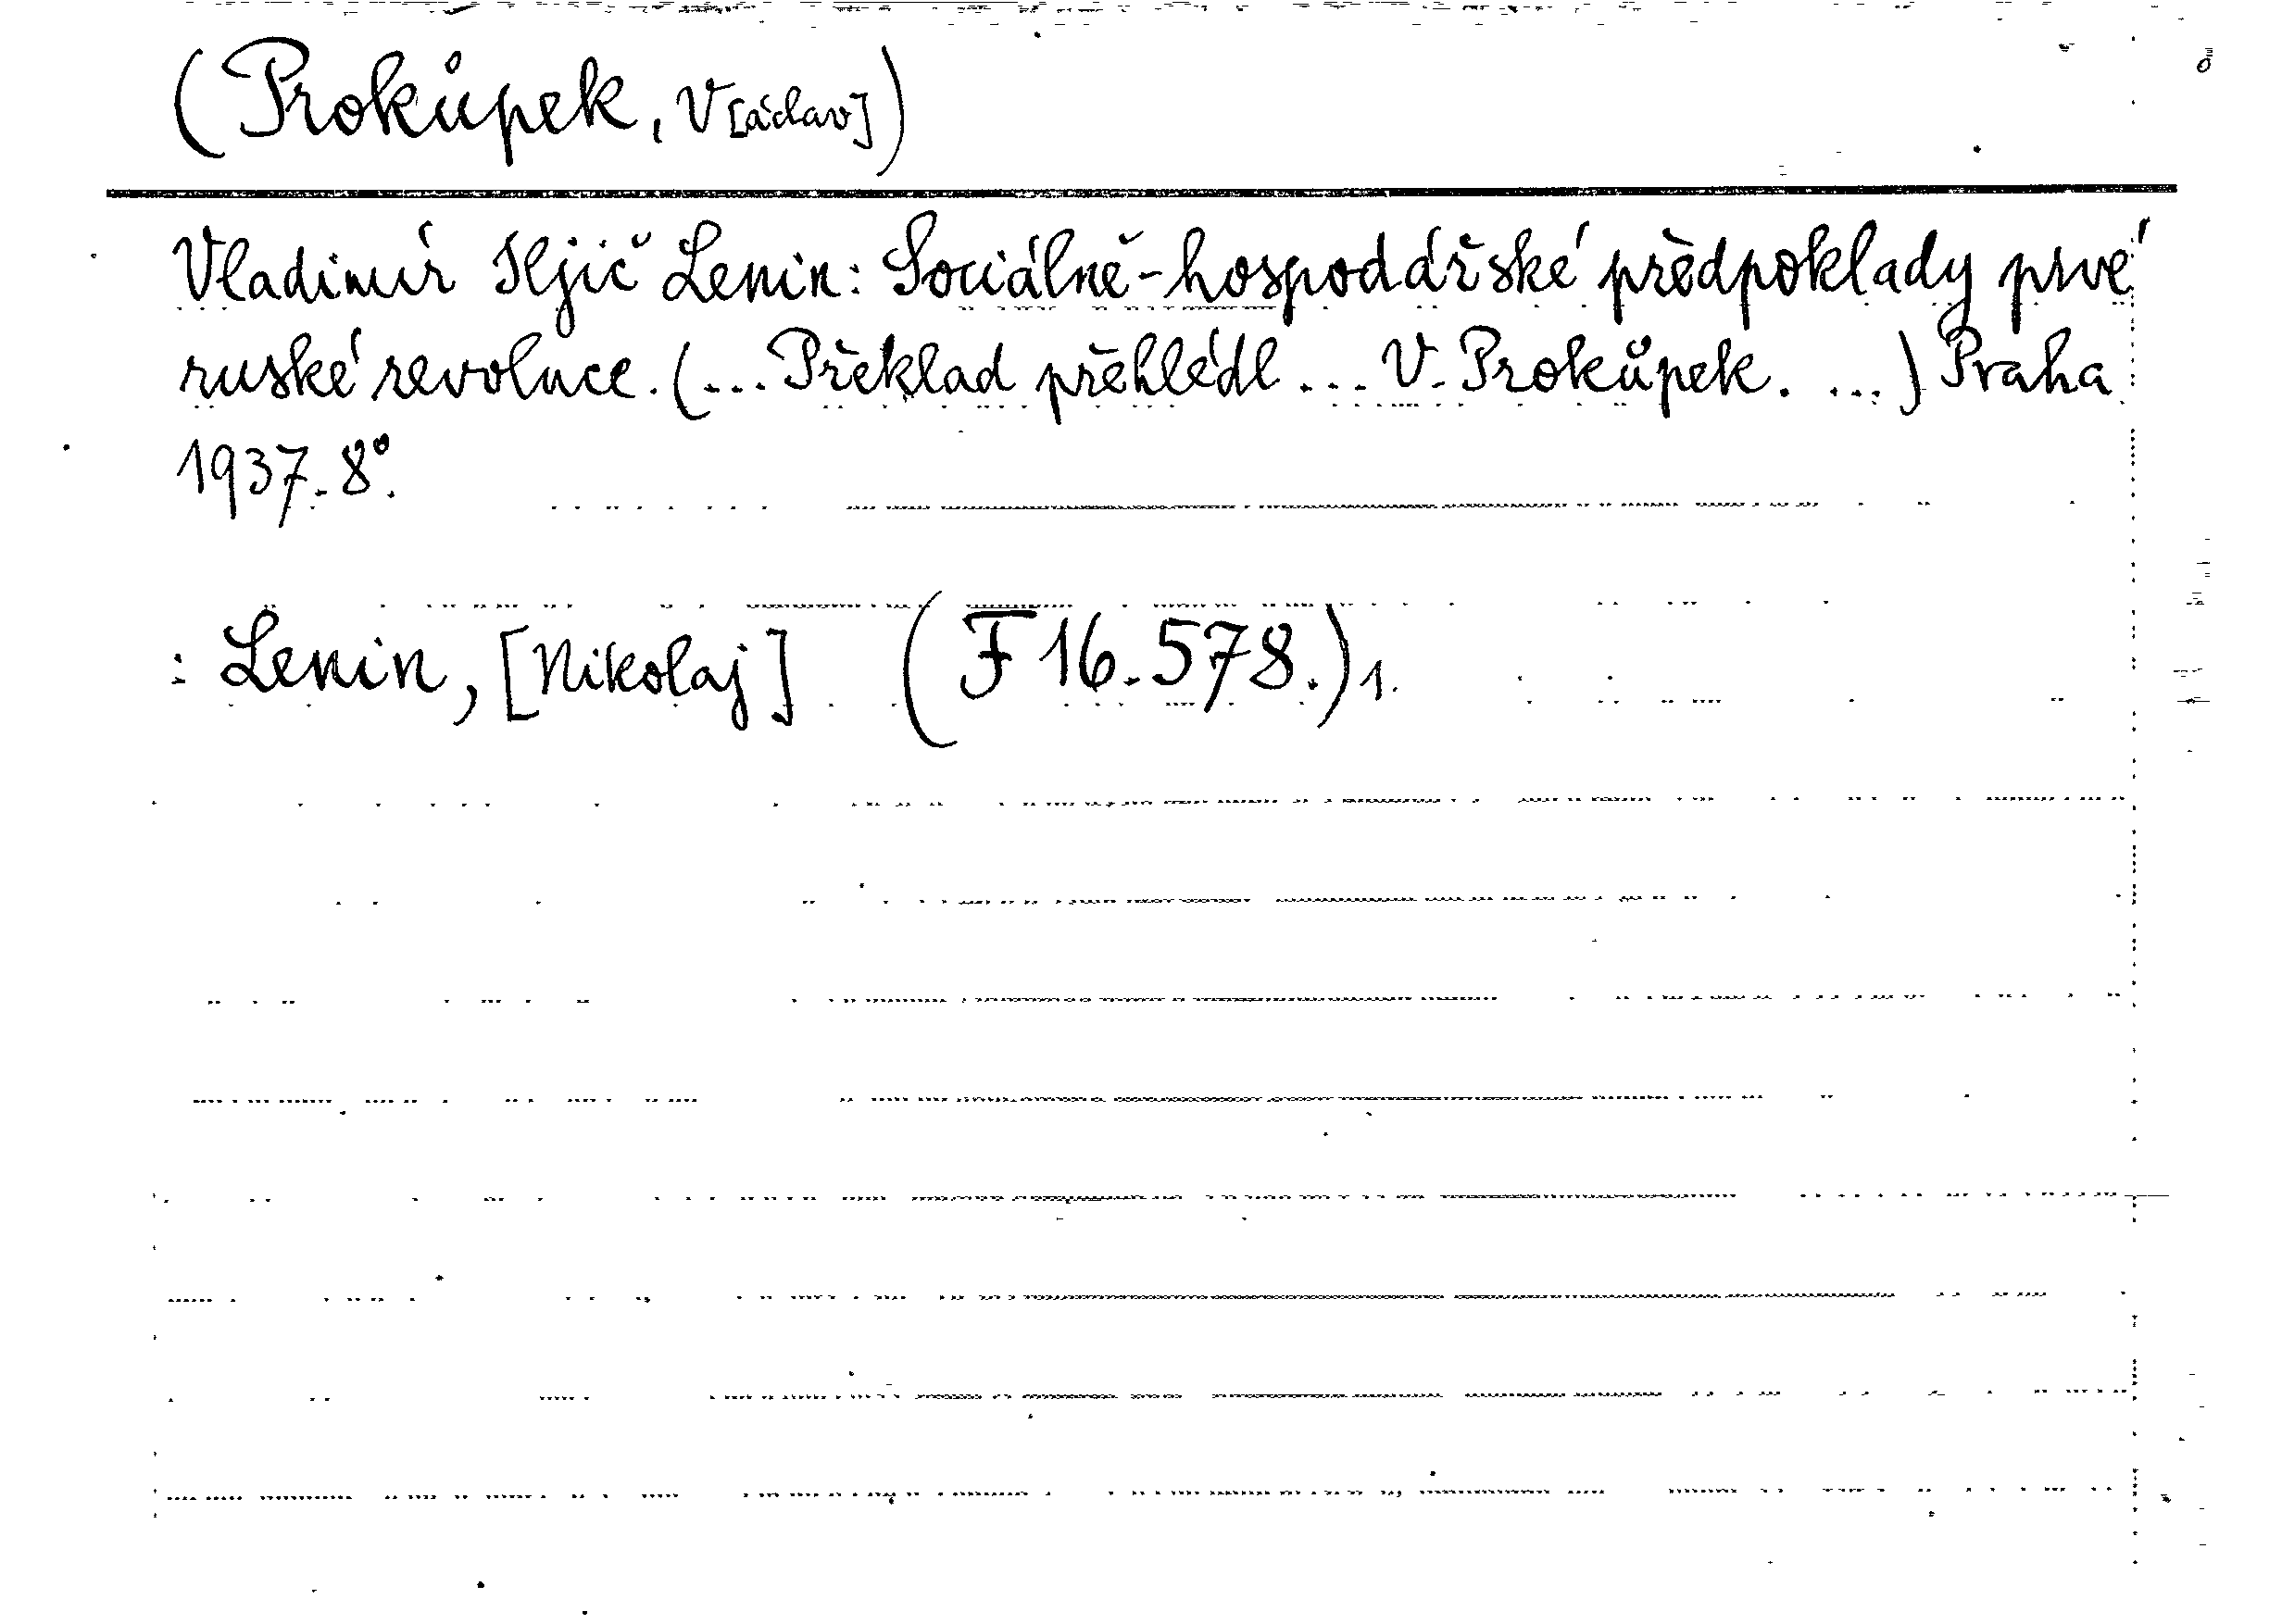 (Prokůpek, V[áclav])
Vladimír Iljič Lenin: Sociálně-hospodářské předpoklady prvé
ruské revoluce. (... Překlad přehlédl ... V. Prokůpek. ...) Praha
1937. 8°.
: Lenin, [Nikolaj] (F 16.578.) 1.